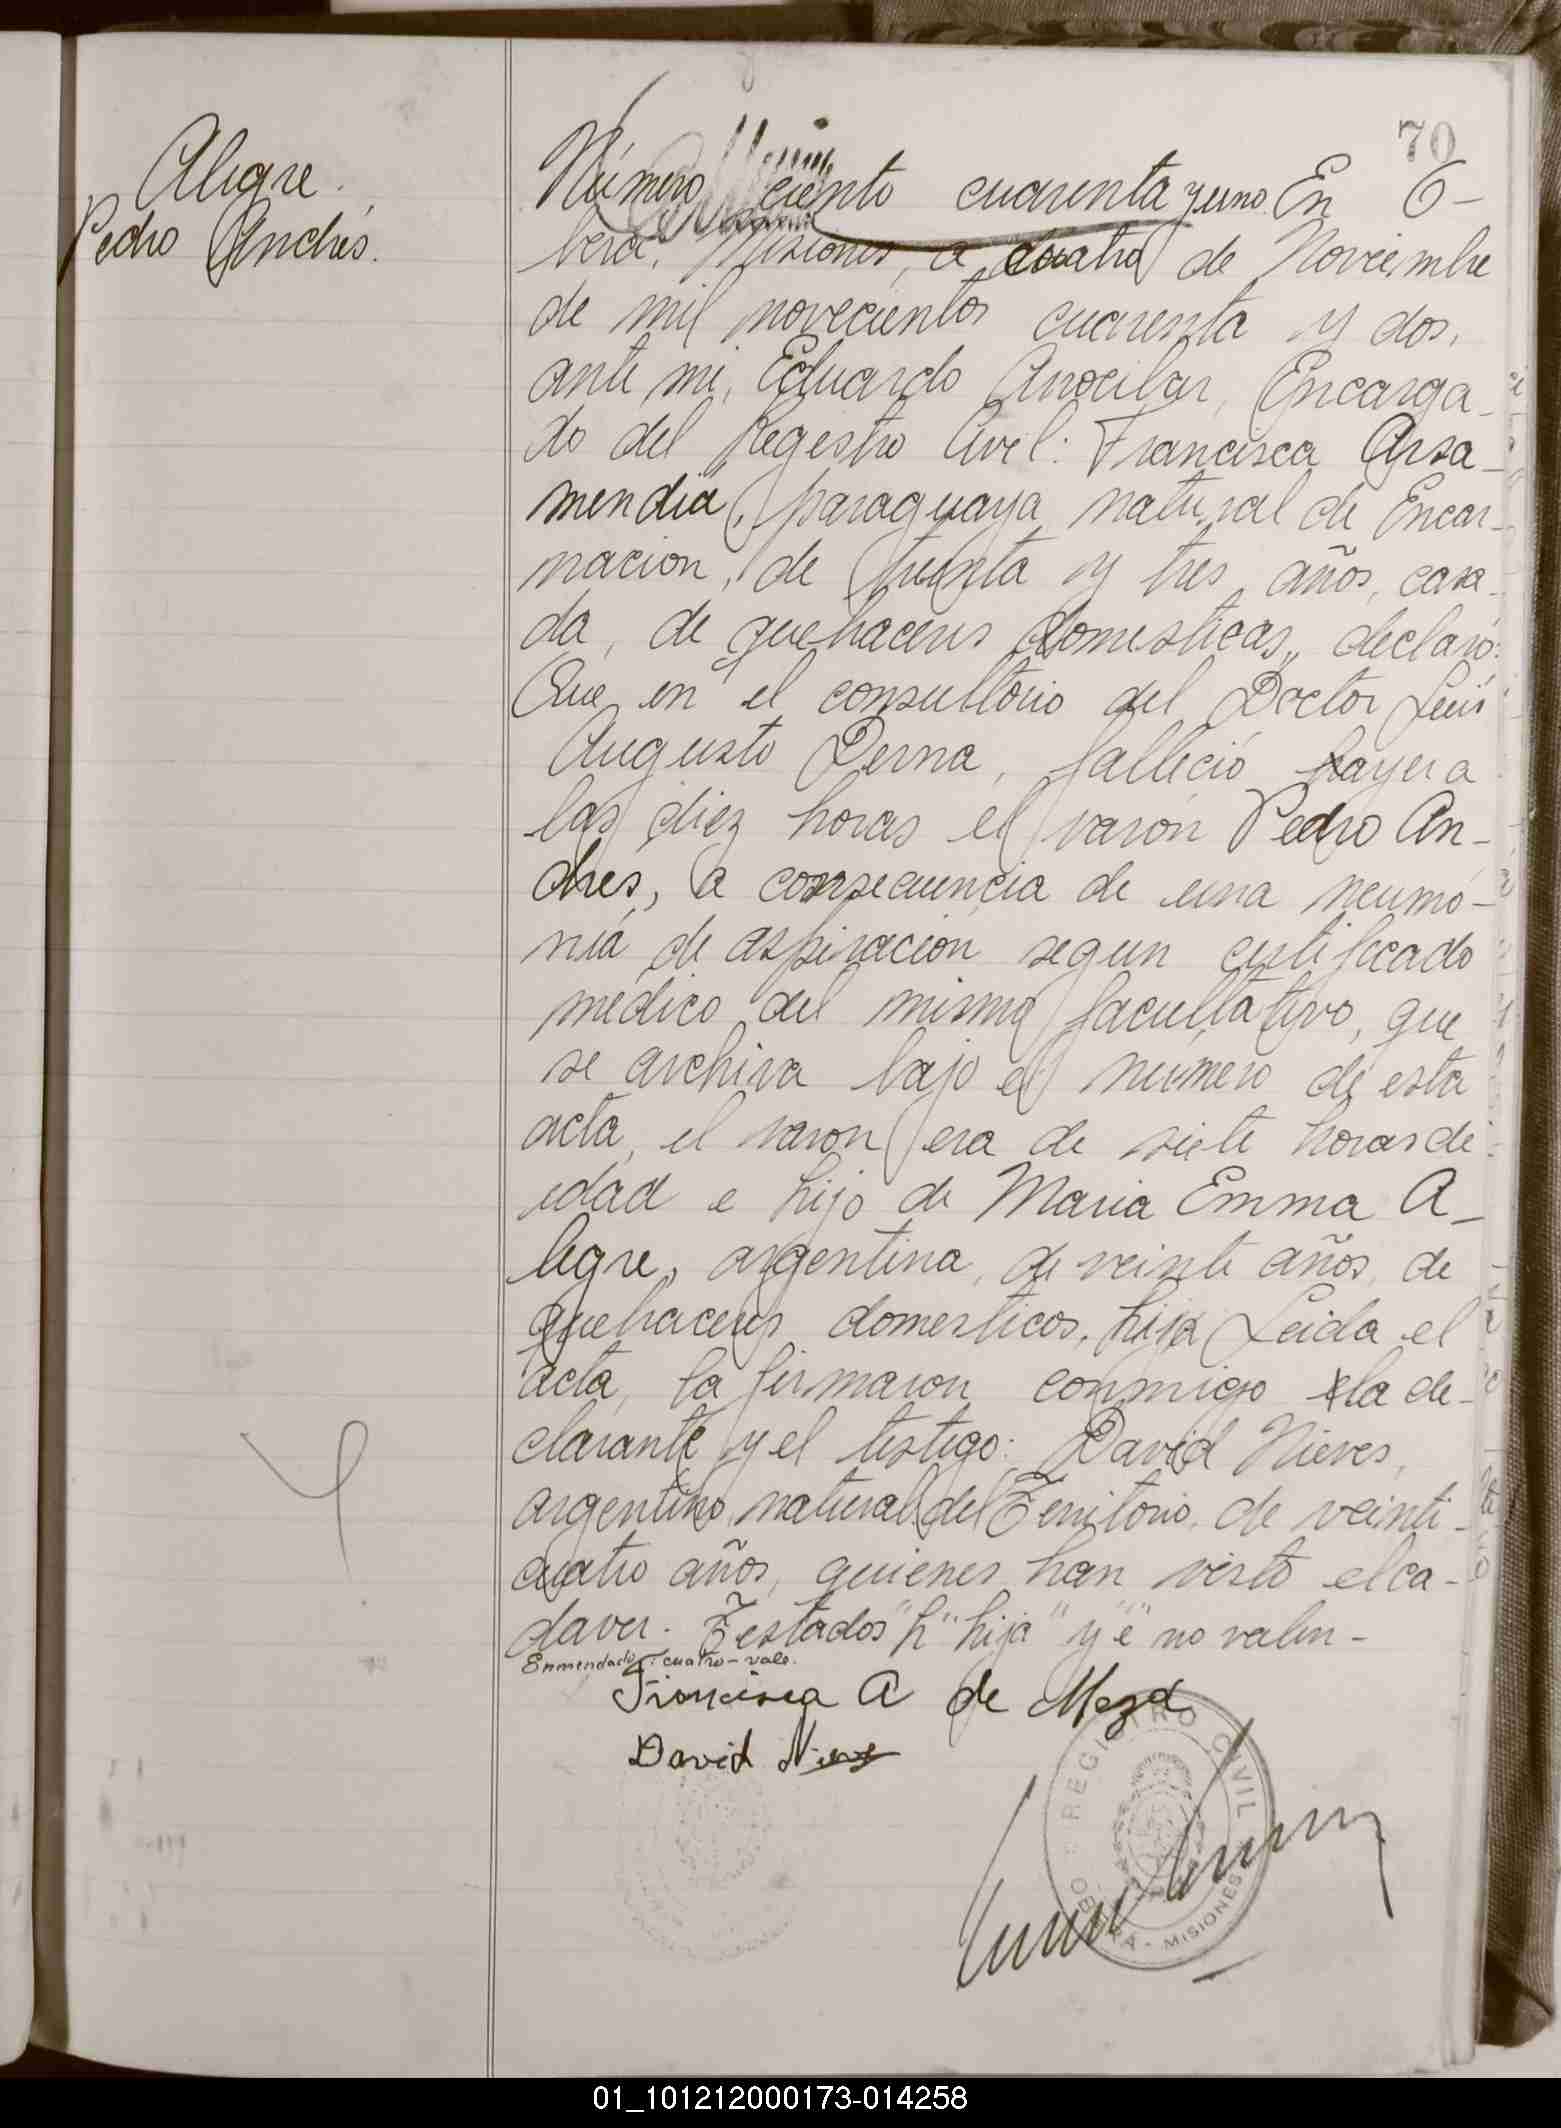 70
Alegre.
Pedro Andrés.
Número ciento cuarenta y uno. En O-
berá, Misiones, a cuatro de Noviembre
de mil novecientos cuarenta y dos,
ante mi, Eduardo Encarga-
do del Registro Civil: Francisca Arsa-
mendia, paraguaya natural de Encar-
nacion, de treinta y tres años, casa-
da, de quehaceres domesticas, declaró:
Que en el consultorio del Doctor Luis
Augusto Derna, falleció hayer a
las diez horas el varón Pedro An-
drés, a consecuencia de una neumo-
nia de aspiracion segun certificado
medico del mismo facultativo, que
se archiva bajo el numero de esta
acta, el varon era de siete horas de
edad e hijo de Maria Emma A-
legre, argentina, de veinte años, de
quehaceres domesticos, hija Leida el
acta, la firmaron conmigo e la de-
clarante y el testigo: David Nieves,
argentino, natural del Territorio, de veinti-
cuatro años, quienes han visto el ca-
daver. Testados "h" "hija" y "e" no valen-
Enmendado: cuatro-vale.
Francisca A de Meza
David Nieves
REGISTRO CIVIL
OBERÁ - MISIONES
01_101212000173-014258